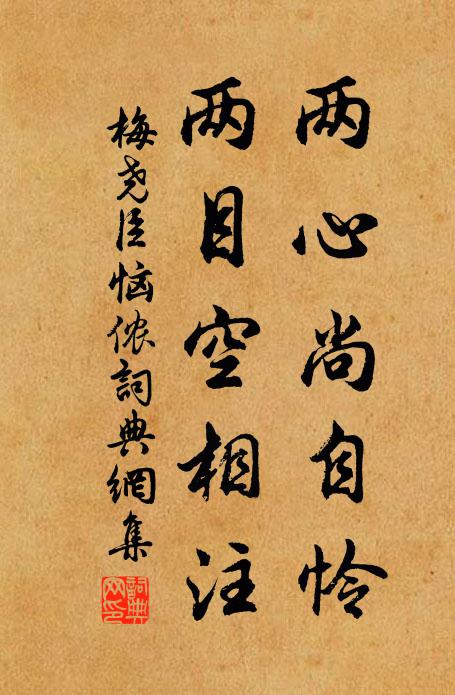 两心尚自怜
两目空相注
梅尧臣恼侬詞典網集
詞典网印